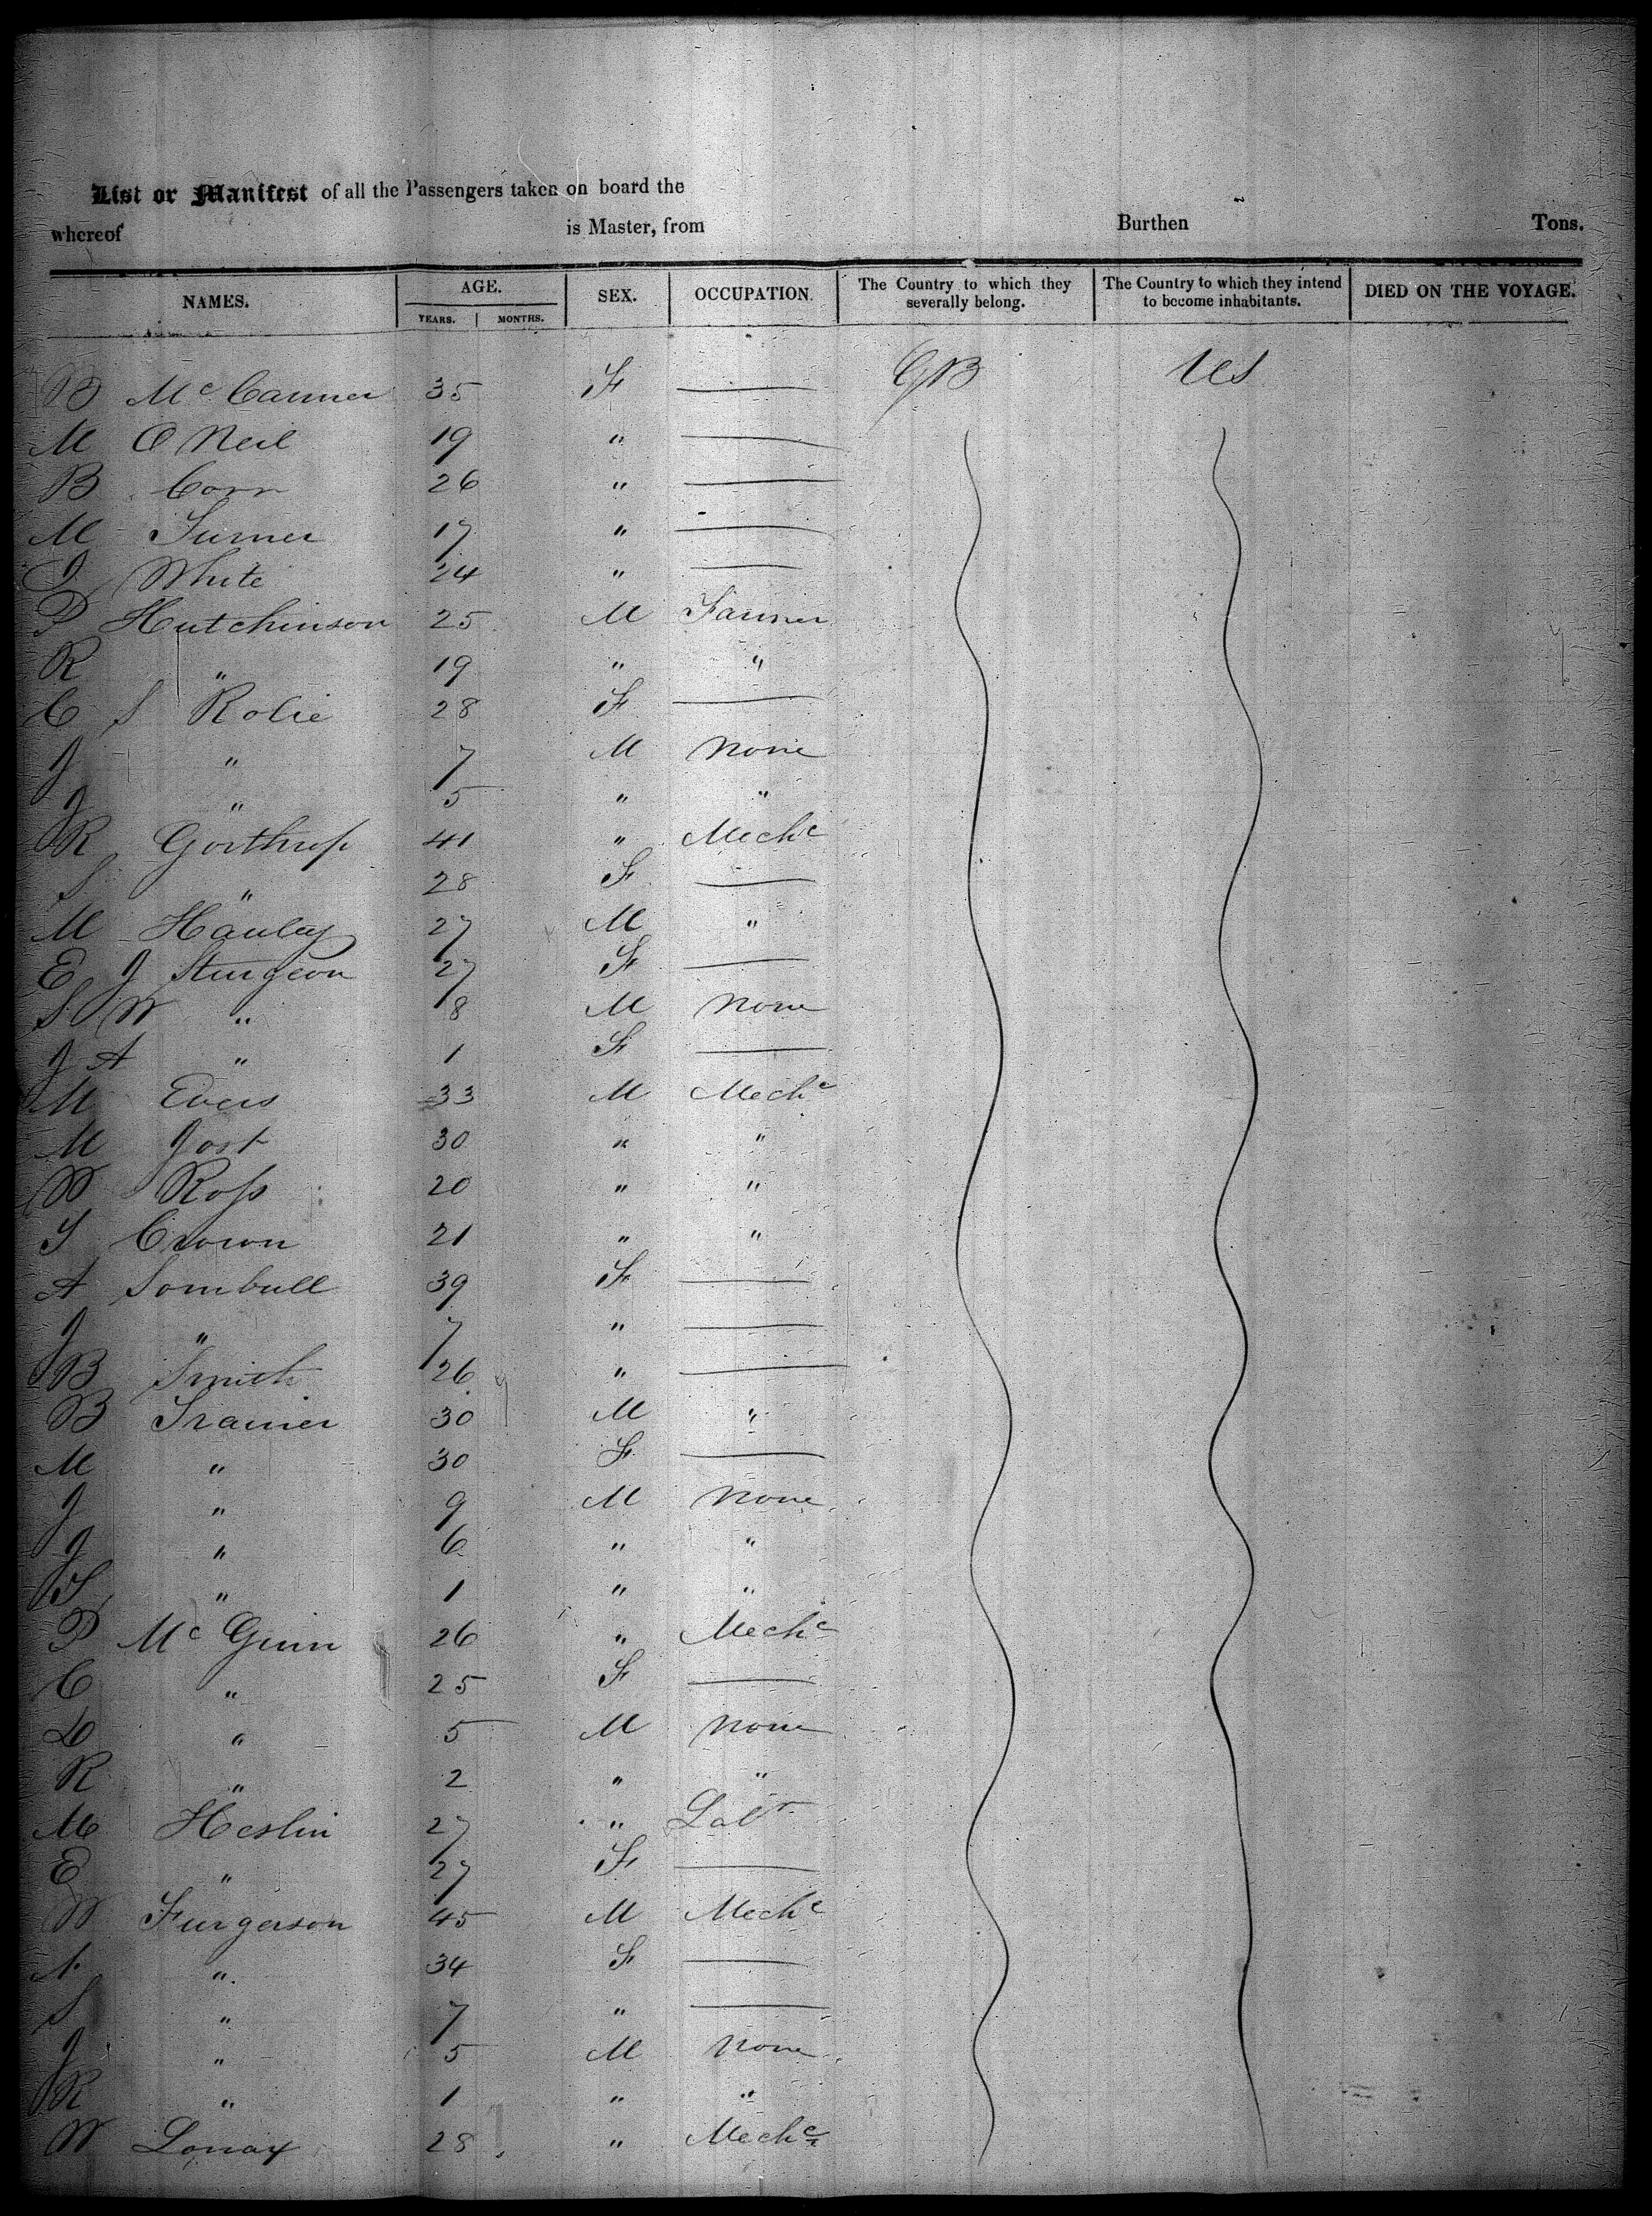 List or Manifest of all the Passengers taken on board the
whereof is Master, from Burthen Tons.
NAMES. AGE. YEARS. MONTHS. SEX. OCCUPATION. The Country to which they severally belong. The Country to which they intend to become inhabitants. DIED ON THE VOYAGE.
B Mc 35 F — GB US
M O Neil 19 " —
B Corr 26 " —
M Turner 17 " —
J White 24 " —
P Hutchinson 25 M Farmer
R " 19 " "
C S Rolie 28 F —
J " 7 M None
J " 5 " "
R Gorthrop 41 " Mechc
S " 28 F —
M Hauley 27 M "
E J Sturgeon 27 F —
S W " 8 M None
J A " 1 F —
M Evers 33 M Mechc
M Jost 30 " "
W Ross 20 " "
T Crown 21 " "
A Sombull 39 F —
J " 7 " —
B Smith 26 " —
B Trainer 30 M "
M " 30 F —
J " 9 M None
J " 6 " "
T " 1 " "
P Mc Ginn 26 " Mechc
C " 25 F —
D " 5 M None
R " 2 " "
M Heslin 27 " Labr
E " 27 F —
W Furgerson 45 M Mechc
A " 34 F —
S " 7 " —
J " 5 M None
R " 1 " "
W 28 " Mechc